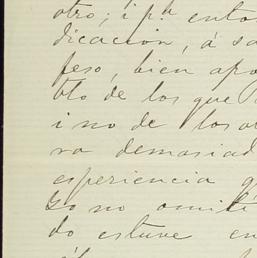 otro; i p.ʰ ento
dicacion, á sa
feso, bien apo
blo de los que
i no de los o
ra demasiad
esperiencia q
Yo no omití
do estuve en